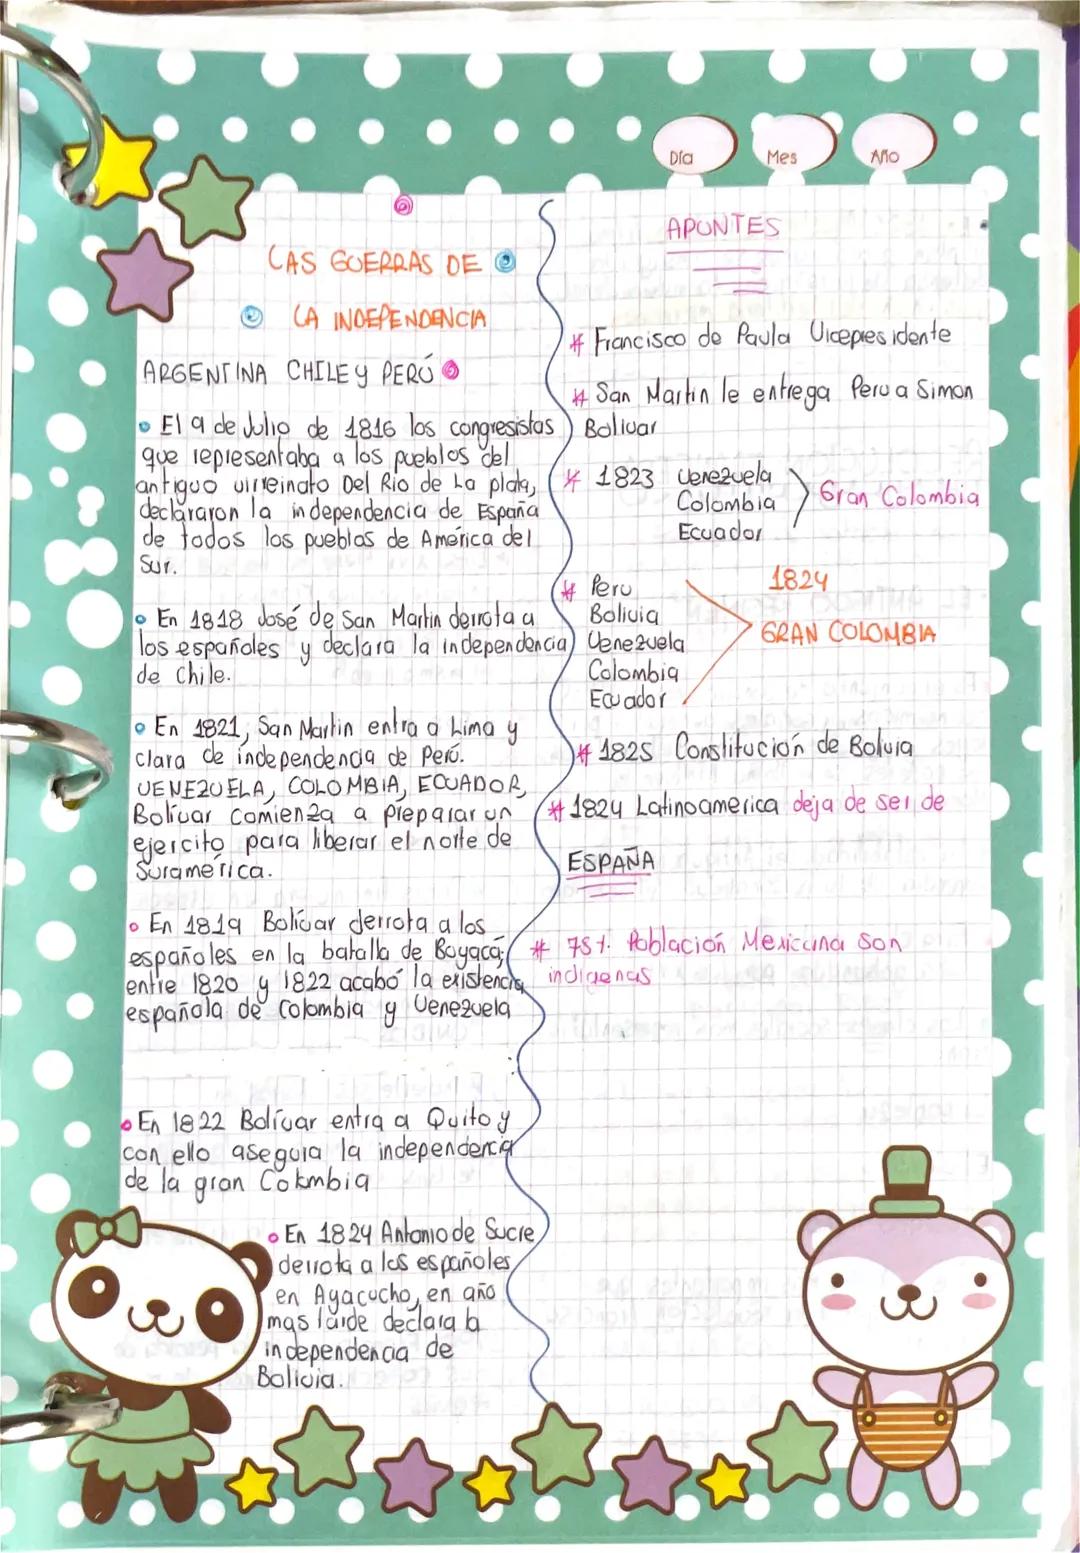 Día
Mes
Año
LAS GUERRAS DE
LA INDEPENDENCIA
ARGENTINA CHILE y PERÚ
El 9 de Julio de 1816 los congresistas
que representaba a los pueblos del
antiguo virreinato Del Río de La plata,
declararon la independencia de España
de todos los pueblos de América del
Sur.
En 1818 José de San Martin derrota a
los españoles y declara la independencia
de Chile.
En 1821, San Martin entra a Lima y
clara de independencia de Perú.
VENEZUELA, COLOMBIA, ECUADOR,
Bolívar comienza a preparar un
ejercito para liberar el norte de
Suramérica.
En 1819 Bolívar derrota a los
españoles en la batalla de Boyacá,
entre 1820 y 1822 acabó la existencia
española de Colombia y Venezuela
En 1822 Bolívar entra a Quito y
con ello asegura la independencia
de la gran Colombia
En 1824 Antonio de Sucre
derrota a los españoles
en Ayacucho, en año
mas tarde declara la
independencia de
Bolivia.
APUNTES
# Francisco de Paula Vicepresidente
# San Martin le entrega Peru a Simon
Bolivar
# 1823 Venezuela
Colombia
Ecuador
Gran Colombia
# Peru
Bolivia
Venezuela
Colombia
Ecuador
1824
GRAN COLOMBIA
# 1825 Constitución de Bolivia
# 1824 Latinoamerica deja de ser de
ESPAÑA
# 75%. Población Mexicana son
indigenas